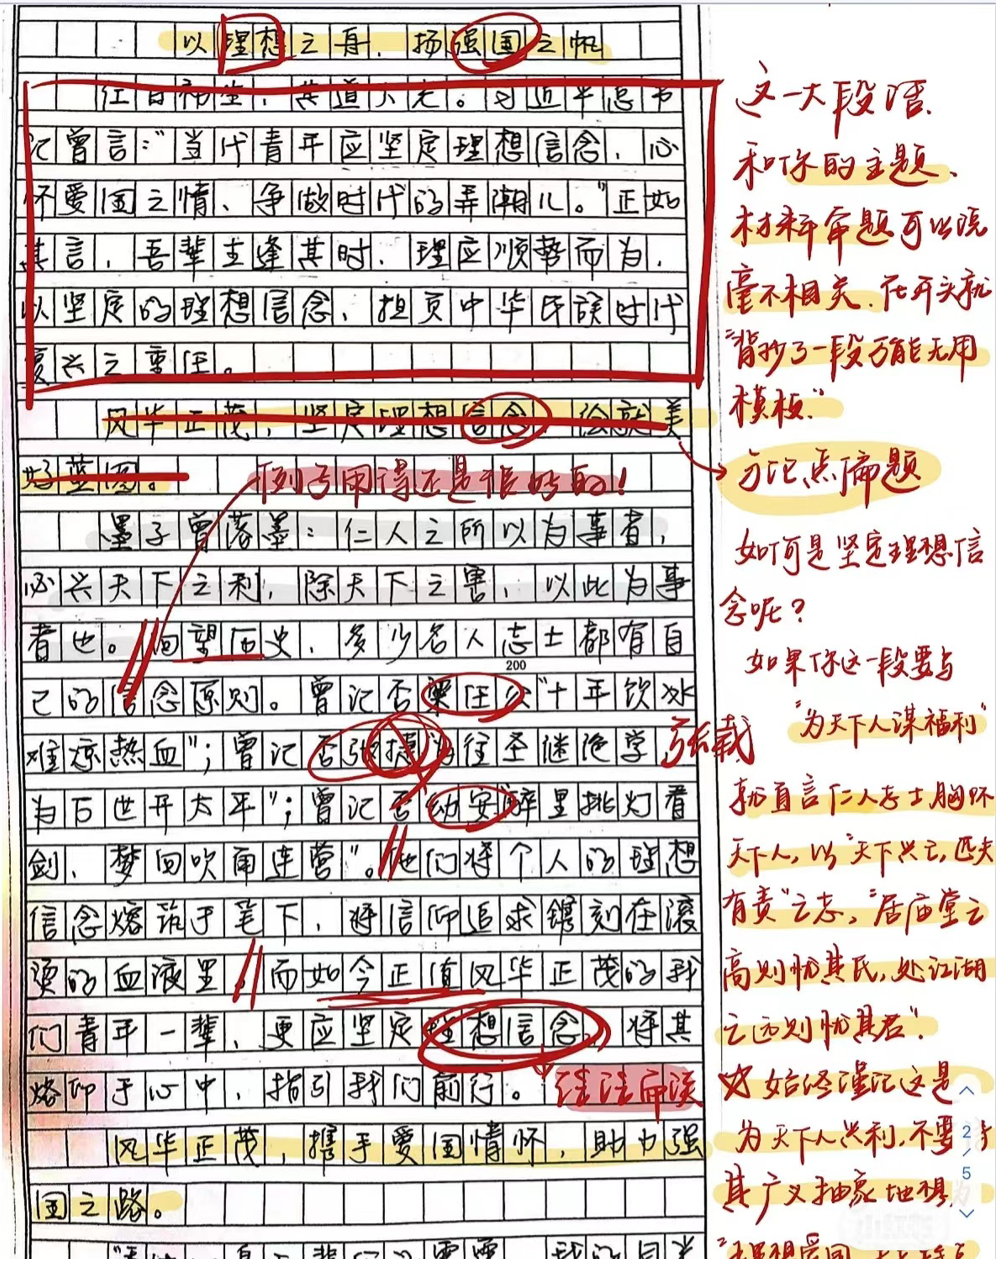 以理想之舟，扬强国之帆
共道人光。习近平总书
记曾言："当代青年应坚定理想信念，心
怀爱国之情、争做时代的弄潮儿。"正如
其言，吾辈生逢其时，理应顺势而为，
以坚定的理想信念，担负中华民族时代
复兴之重任。
风华正茂，坚定理想信念，绘就美
好蓝图。
例子用得还是很好的！
墨子曾落墨：仁人之所以为事者，
必兴天下之利，除天下之害，以此为事
者也。回望历史，多少名人志士都有自
200
己的信念原则。曾记否梁任公"十年饮冰
难凉热血"；曾记否张往圣继绝学
张载
为万世开太平"；曾记否幼安醉里挑灯看
剑，梦回吹角连营"。他们将个人的理想
信念熔铸于笔下，将信仰追求镌刻在滚
烫的血液里。而如今正值风华正茂的我
们青年一辈，更应坚定理想信念，将其
烙印于心中，指引我们前行。
泛泛而谈
风华正茂，携手爱国情怀，助力强
国之路。
这一大段话，
和你的主题、
材料审题可以说
毫不相关，在开头就
"背抄了一段万能无用
模板"
分论点偏题
如何是坚定理想信
念呢？
如果你这一段要与
"为天下人谋福利"
就直言仁人志士胸怀
天下人，以"天下兴亡，匹夫
有责"之志，"居庙堂之
高则忧其民，处江湖
之远则忧其君"
始终谨记这是
为天下人兴利，不要
其广义抽象地想
2/5
小红书